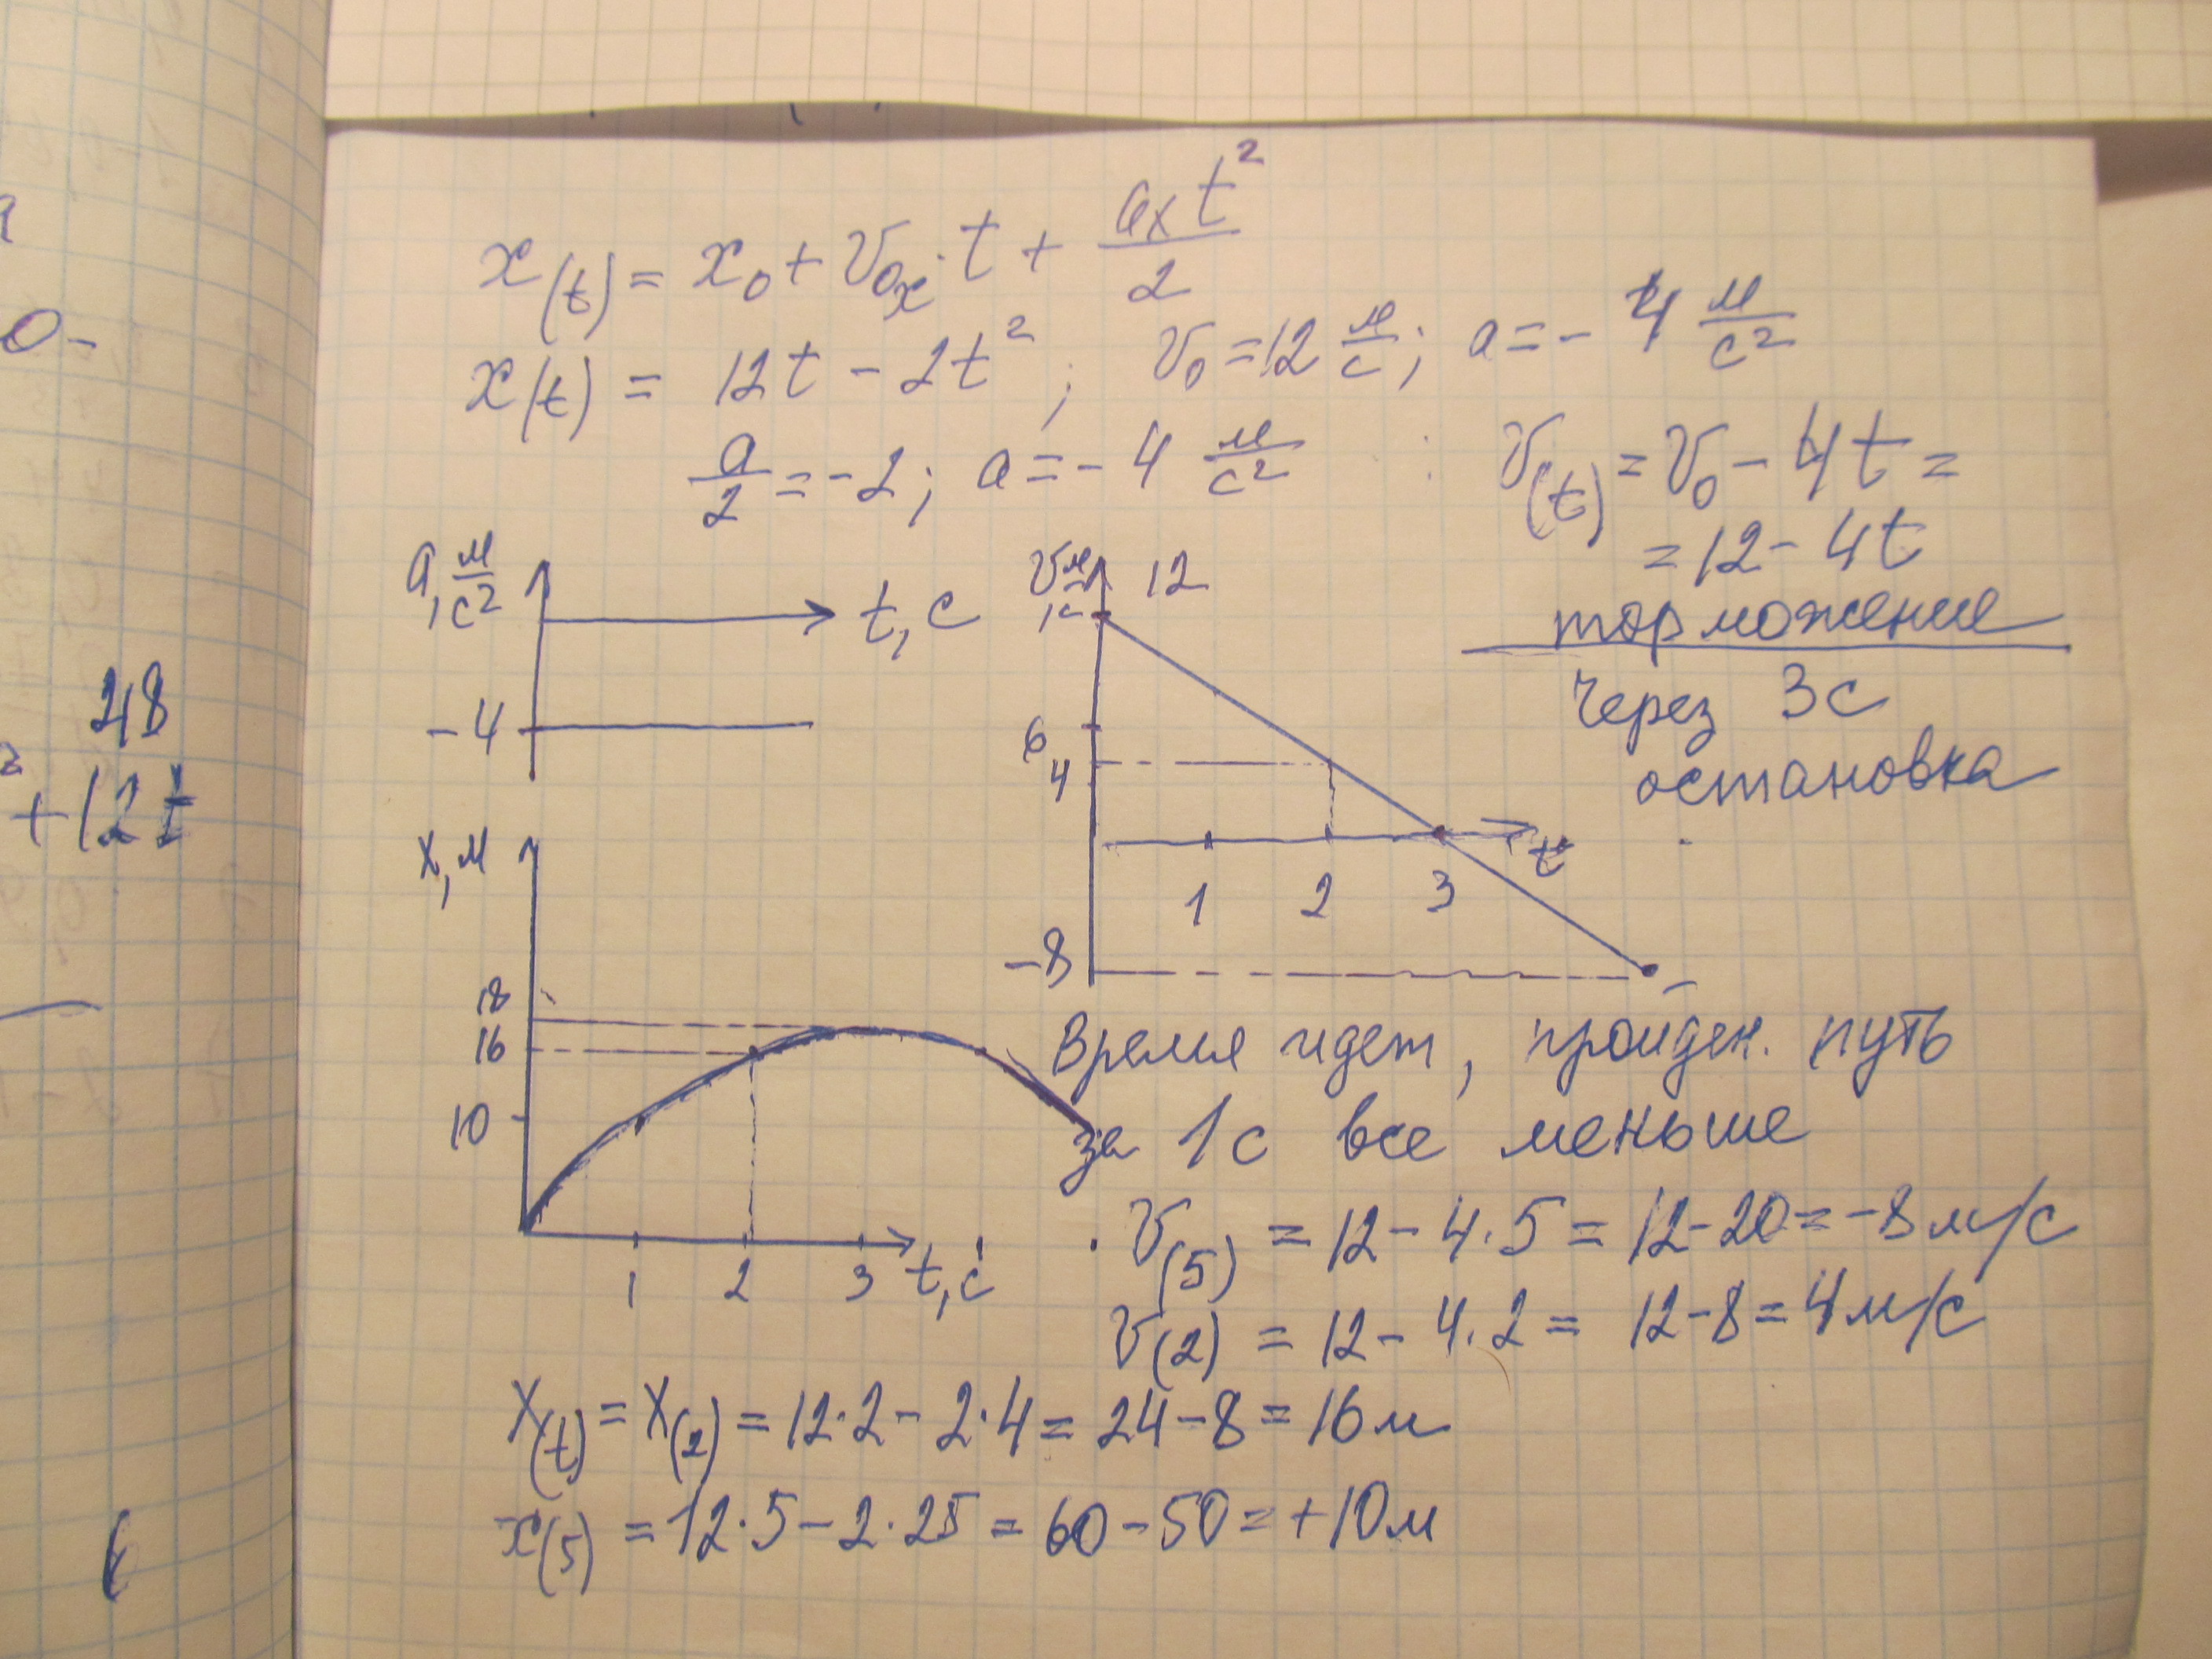 x(t) = x₀ + v₀ₓ · t + aₓt²/2
x(t) = 12t - 2t² ; v₀ = 12 м/с ; a = - 4 м/с²
a/2 = -2 ; a = - 4 м/с²
v(t) = v₀ - 4t =
= 12 - 4t
торможение
через 3с
остановка
a, м/с²
t, с
-4
v, м/с
12
6
4
1 2 3
t
-8
x, м
18
16
10
1 2 3 t, с
Время идет, пройден. путь
за 1с все меньше
v(5) = 12 - 4·5 = 12-20 = -8 м/с
v(2) = 12 - 4·2 = 12-8 = 4 м/с
x(t) = x(2) = 12·2 - 2·4 = 24-8 = 16м
x(5) = 12·5 - 2·25 = 60-50 = +10м
0-
48
+12t